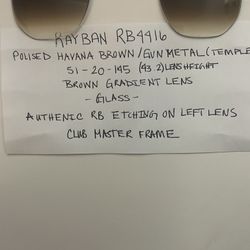 RAYBAN RB4416
POLISED HAVANA BROWN/GUN METAL (TEMPLE
51-20-145 (43.2) LENS HEIGHT
BROWN GRADIENT LENS
- GLASS -
AUTHENIC RB ETCHING ON LEFT LENS
CLUB MASTER FRAME